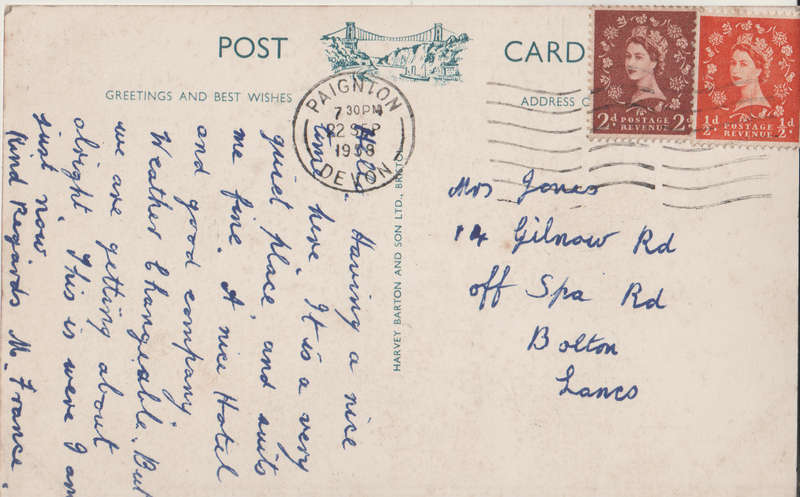 POST CARD
GREETINGS AND BEST WISHES
ADDRESS
PAIGNTON
7 30 PM
22 SEP
1958
DEVON
2d POSTAGE REVENUE 2d
½d POSTAGE REVENUE ½d
HARVEY BARTON AND SON LTD., BRISTOL
Hello. Having a nice
time here. It is a very
quiet place and suits
me fine. A nice Hotel
and good company
Weather Changeable. But
we are getting about
alright This is were I am
just now
Kind Regards M. France.
Mrs Jones
14 Gilnow Rd
off Spa Rd
Bolton
Lancs